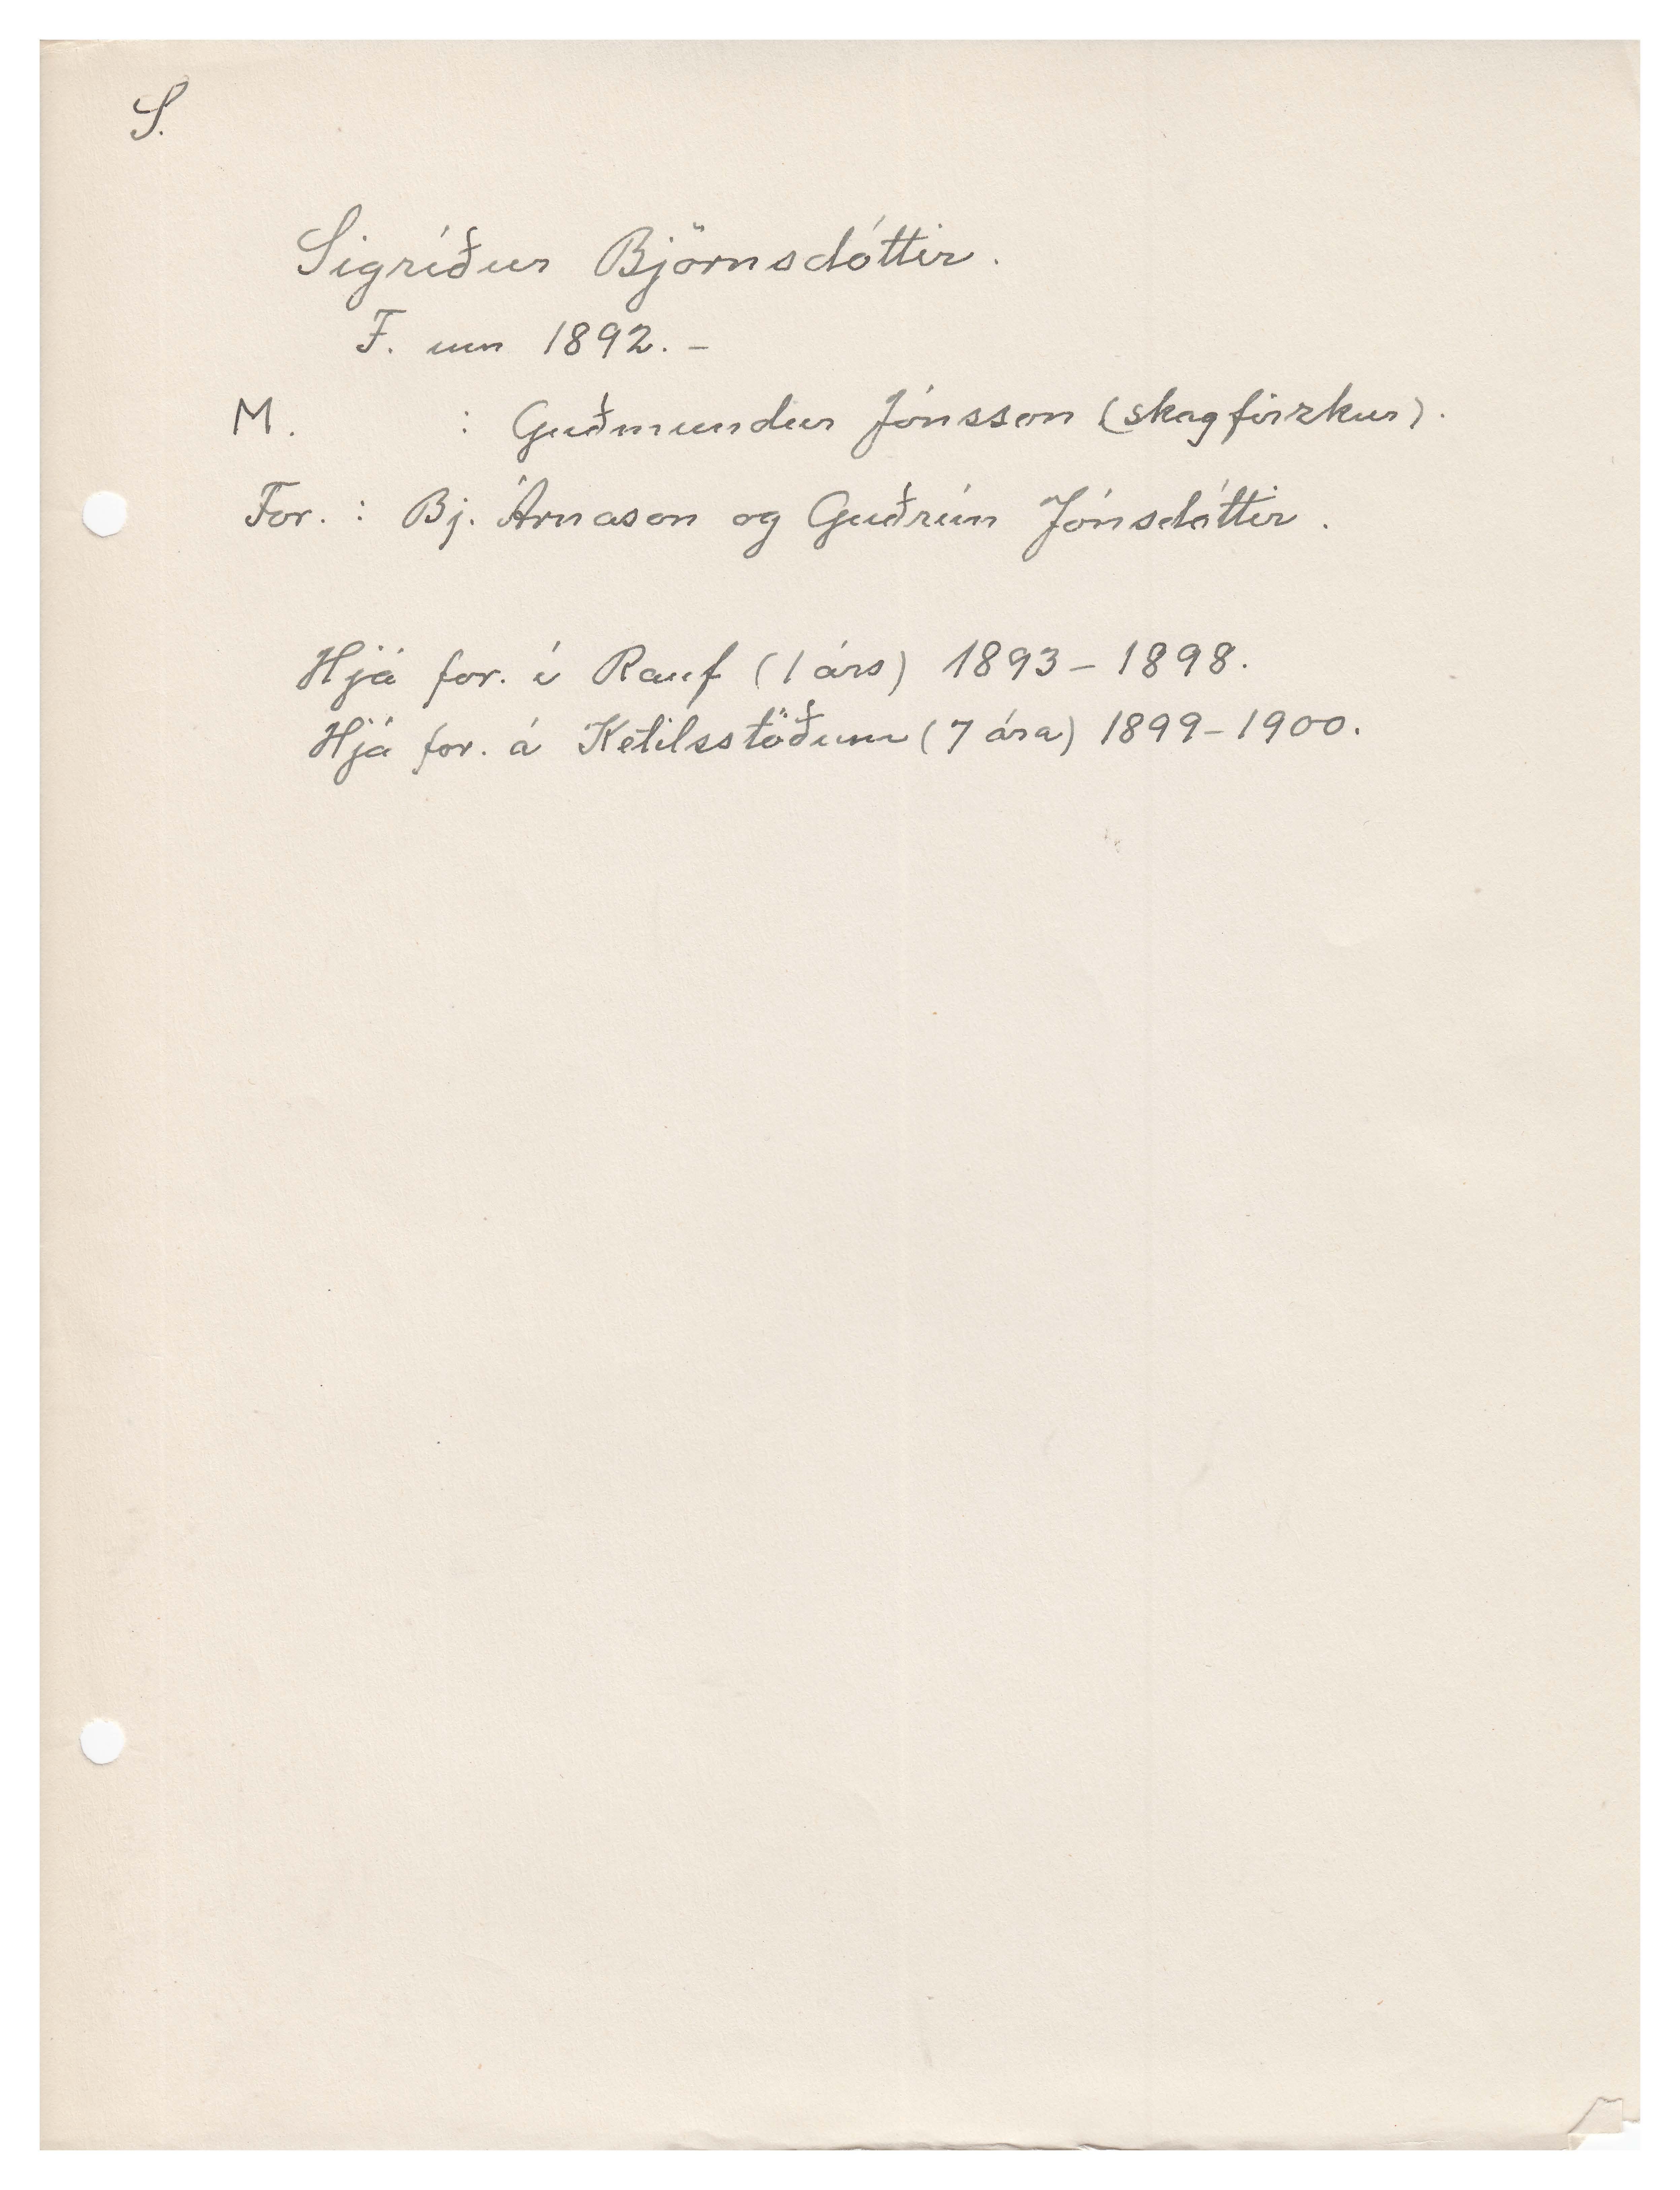 S.
Sigríður Björnsdóttir.
F. um 1892. -
M. : Guðmundur Jónsson (skagfirzkur).
For. : Bj. Árnason og Guðrún Jónsdóttir.
Hjá for. í Rauf (1 árs) 1893-1898.
Hjá for. á Ketilsstöðum (7 ára) 1899-1900.